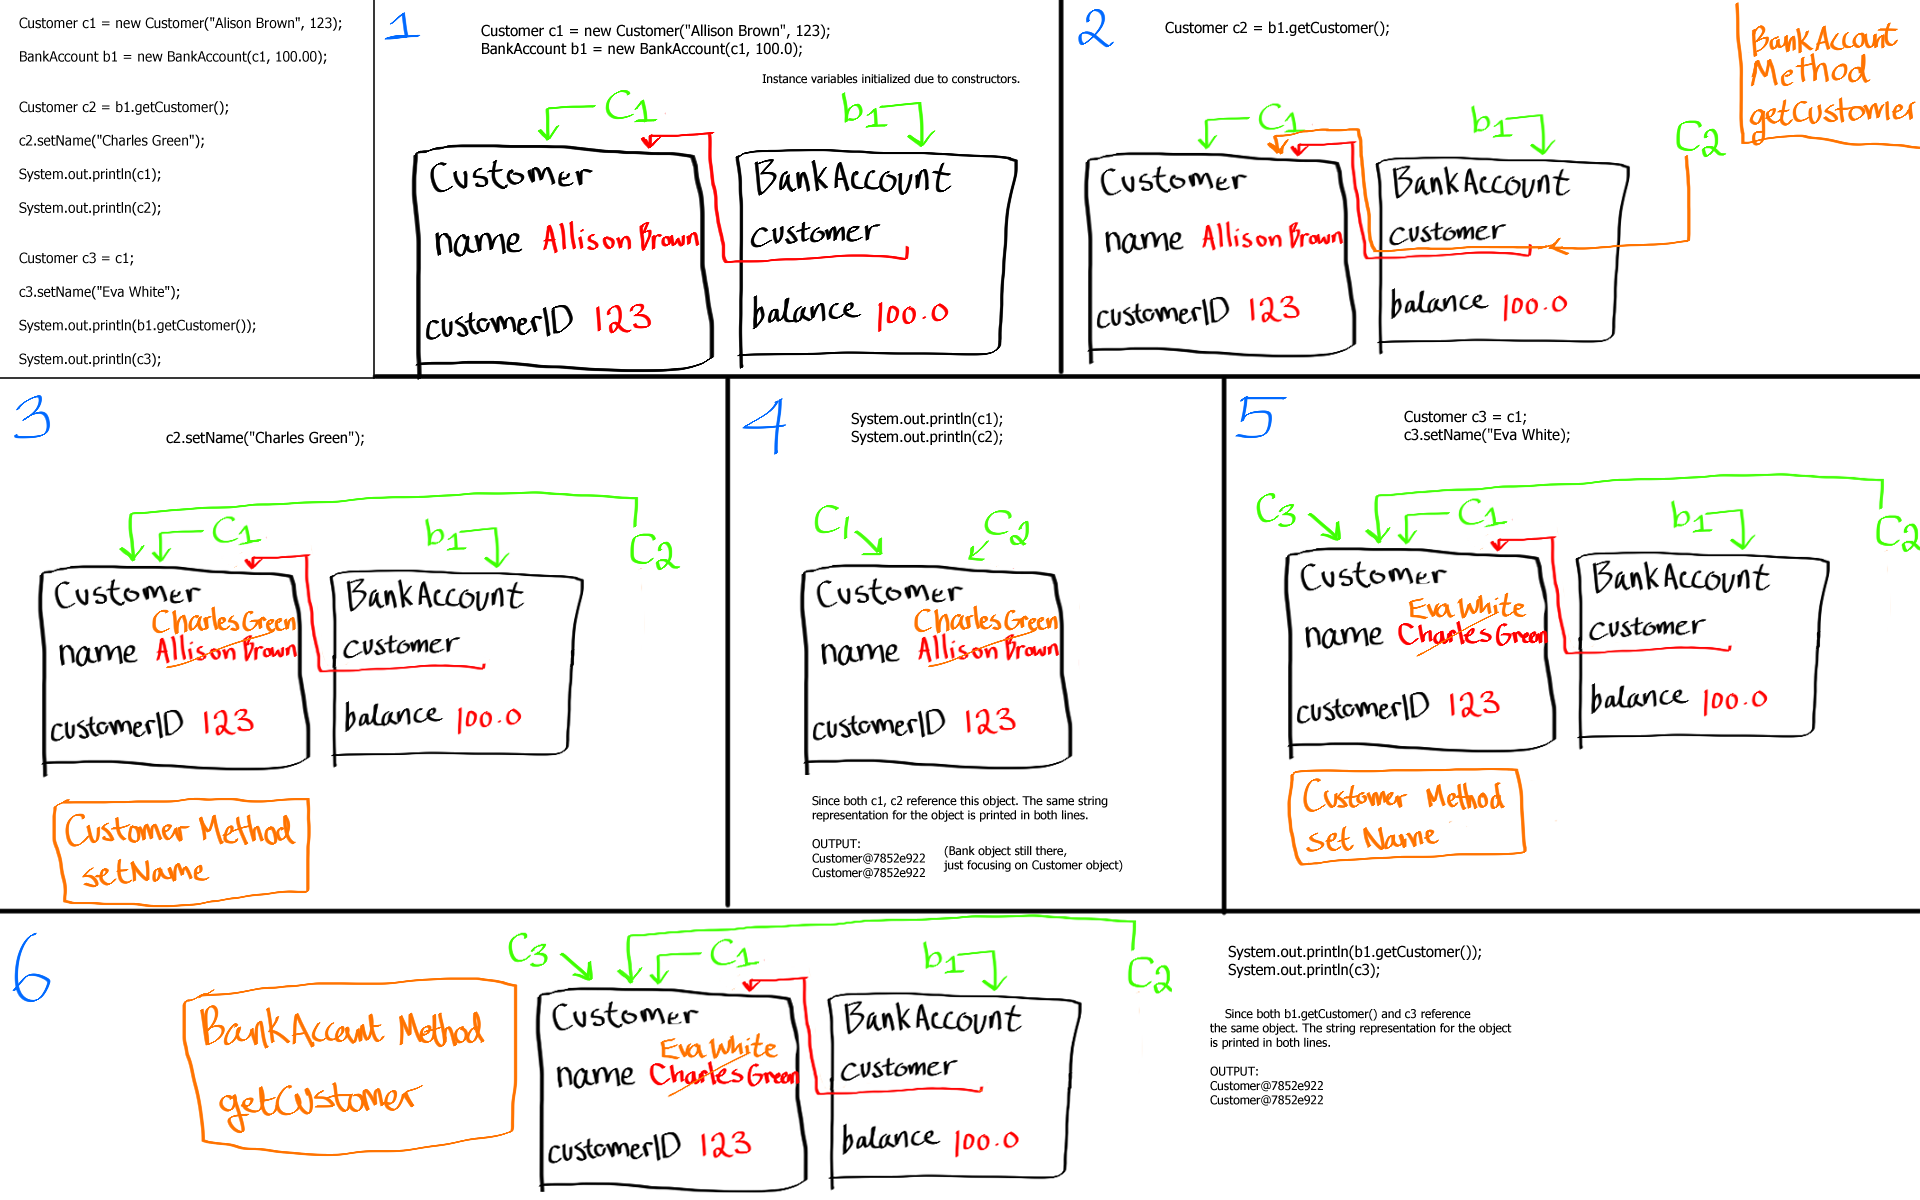 Customer c1 = new Customer("Alison Brown", 123);
BankAccount b1 = new BankAccount(c1, 100.00);
Customer c2 = b1.getCustomer();
c2.setName("Charles Green");
System.out.println(c1);
System.out.println(c2);
Customer c3 = c1;
c3.setName("Eva White");
System.out.println(b1.getCustomer());
System.out.println(c3);
1
Customer c1 = new Customer("Allison Brown", 123);
BankAccount b1 = new BankAccount(c1, 100.0);
Instance variables initialized due to constructors.
C1
b1
Customer
name Allison Brown
customerID 123
BankAccount
customer
balance 100.0
2
Customer c2 = b1.getCustomer();
BankAccount
Method
getCustomer
C1
b1
C2
Customer
name Allison Brown
customerID 123
BankAccount
customer
balance 100.0
3
c2.setName("Charles Green");
C1
b1
C2
Customer
Charles Green
name Allison Brown
customerID 123
BankAccount
customer
balance 100.0
Customer Method
setName
4
System.out.println(c1);
System.out.println(c2);
C1
C2
Customer
Charles Green
name Allison Brown
customerID 123
Since both c1, c2 reference this object. The same string
representation for the object is printed in both lines.
OUTPUT:
Customer@7852e922
Customer@7852e922
(Bank object still there,
just focusing on Customer object)
5
Customer c3 = c1;
c3.setName("Eva White);
C3
C1
b1
C2
Customer
Eva White
name Charles Green
customerID 123
BankAccount
customer
balance 100.0
Customer Method
set Name
6
BankAccount Method
getCustomer
C3
C1
b1
C2
Customer
Eva White
name Charles Green
customerID 123
BankAccount
customer
balance 100.0
System.out.println(b1.getCustomer());
System.out.println(c3);
Since both b1.getCustomer() and c3 reference
the same object. The string representation for the object
is printed in both lines.
OUTPUT:
Customer@7852e922
Customer@7852e922